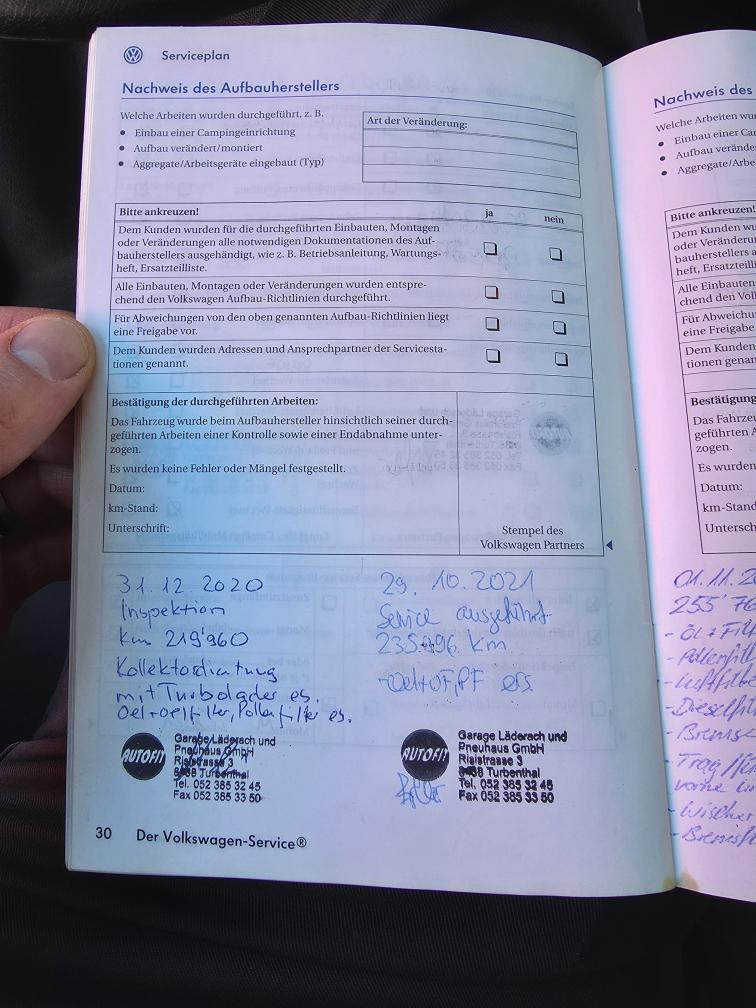 Serviceplan
Nachweis des Aufbauherstellers
Welche Arbeiten wurden durchgeführt, z. B.
• Einbau einer Campingeinrichtung
• Aufbau verändert/montiert
• Aggregate/Arbeitsgeräte eingebaut (Typ)
Art der Veränderung:
Bitte ankreuzen! ja nein
Dem Kunden wurden für die durchgeführten Einbauten, Montagen
oder Veränderungen alle notwendigen Dokumentationen des Auf-
bauherstellers ausgehändigt, wie z. B. Betriebsanleitung, Wartungs-
heft, Ersatzteilliste.
Alle Einbauten, Montagen oder Veränderungen wurden entspre-
chend den Volkswagen Aufbau-Richtlinien durchgeführt.
Für Abweichungen von den oben genannten Aufbau-Richtlinien liegt
eine Freigabe vor.
Dem Kunden wurden Adressen und Ansprechpartner der Servicesta-
tionen genannt.
Bestätigung der durchgeführten Arbeiten:
Das Fahrzeug wurde beim Aufbauhersteller hinsichtlich seiner durch-
geführten Arbeiten einer Kontrolle sowie einer Endabnahme unter-
zogen.
Es wurden keine Fehler oder Mängel festgestellt.
Datum:
km-Stand:
Unterschrift:
Stempel des
Volkswagen Partners
31.12.2020
Inspektion
km 219'960
Kollektordichtung
mit Turbolader es.
Oel+oelfilter, Pollenfilter es.
AUTOFIT
Garage Läderach und
Pneuhaus GmbH
Risistrasse 3
8488 Turbenthal
Tel. 052 385 32 45
Fax 052 385 33 50
29.10.2021
Service ausgeführt
km
AUTOFIT
Garage Läderach und
Pneuhaus GmbH
Risistrasse 3
8488 Turbenthal
Tel. 052 385 32 45
Fax 052 385 33 50
30 Der Volkswagen-Service®
Nachweis des
Welche Arbeiten wur
• Einbau einer Car
• Aufbau verände
• Aggregate/Arbe
Bitte ankreuzen!
Dem Kunden wurd
oder Veränderungen
bauherstellers ausge
heft, Ersatzteilliste.
Alle Einbauten
chend den Volksw
Für Abweichu
eine Freigabe
Dem Kunden
tionen genan
Bestätigung
Das Fahrzeu
geführten A
zogen.
Es wurden
Datum:
km-Stand
Untersch
01.11.2
255'76
- Öl + Filt
- Pollenfilt
- Luftfilte
- Dieselfilt
- Bremsc
- Trag/
vorne
- Wischer
- Bremsfl